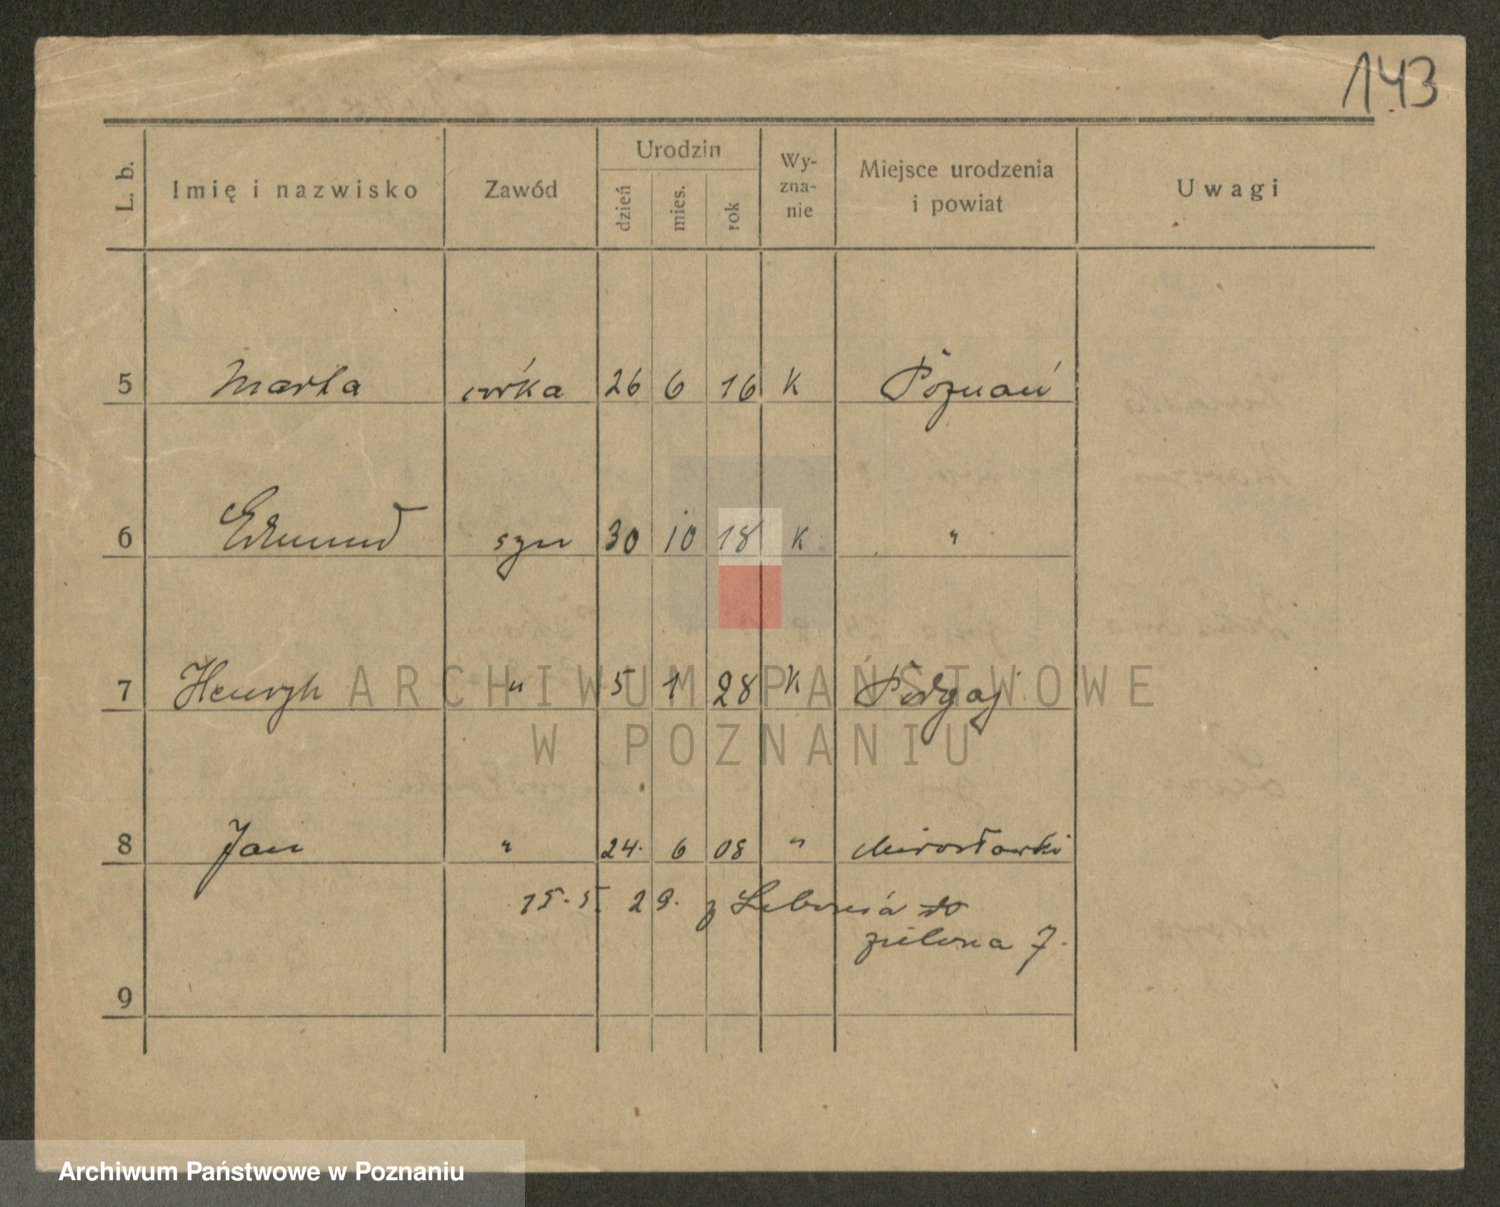 143
L. b. Imię i nazwisko Zawód Urodzin dzień mies. rok Wyznanie Miejsce urodzenia i powiat Uwagi
5 Marta córka 26 6 16 K Poznań
6 Edmund syn 30 10 18 K "
7 Henryk " 5 1 28 K Podgaj
8 Jan " 24. 6 08 " Mirosławki
15. 5. 29. z Lubonia do
zielona 7.
9
ARCHIWUM PAŃSTWOWE
W POZNANIU
Archiwum Państwowe w Poznaniu